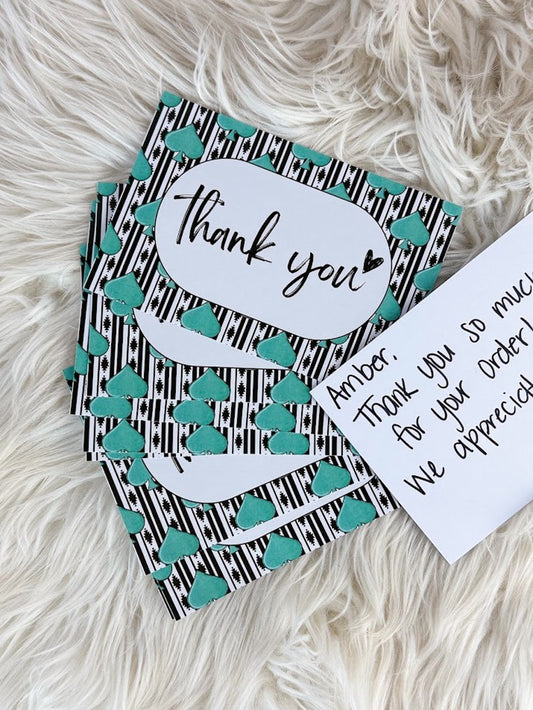 thank you
Amber,
Thank you so much
for your order!
We appreciat